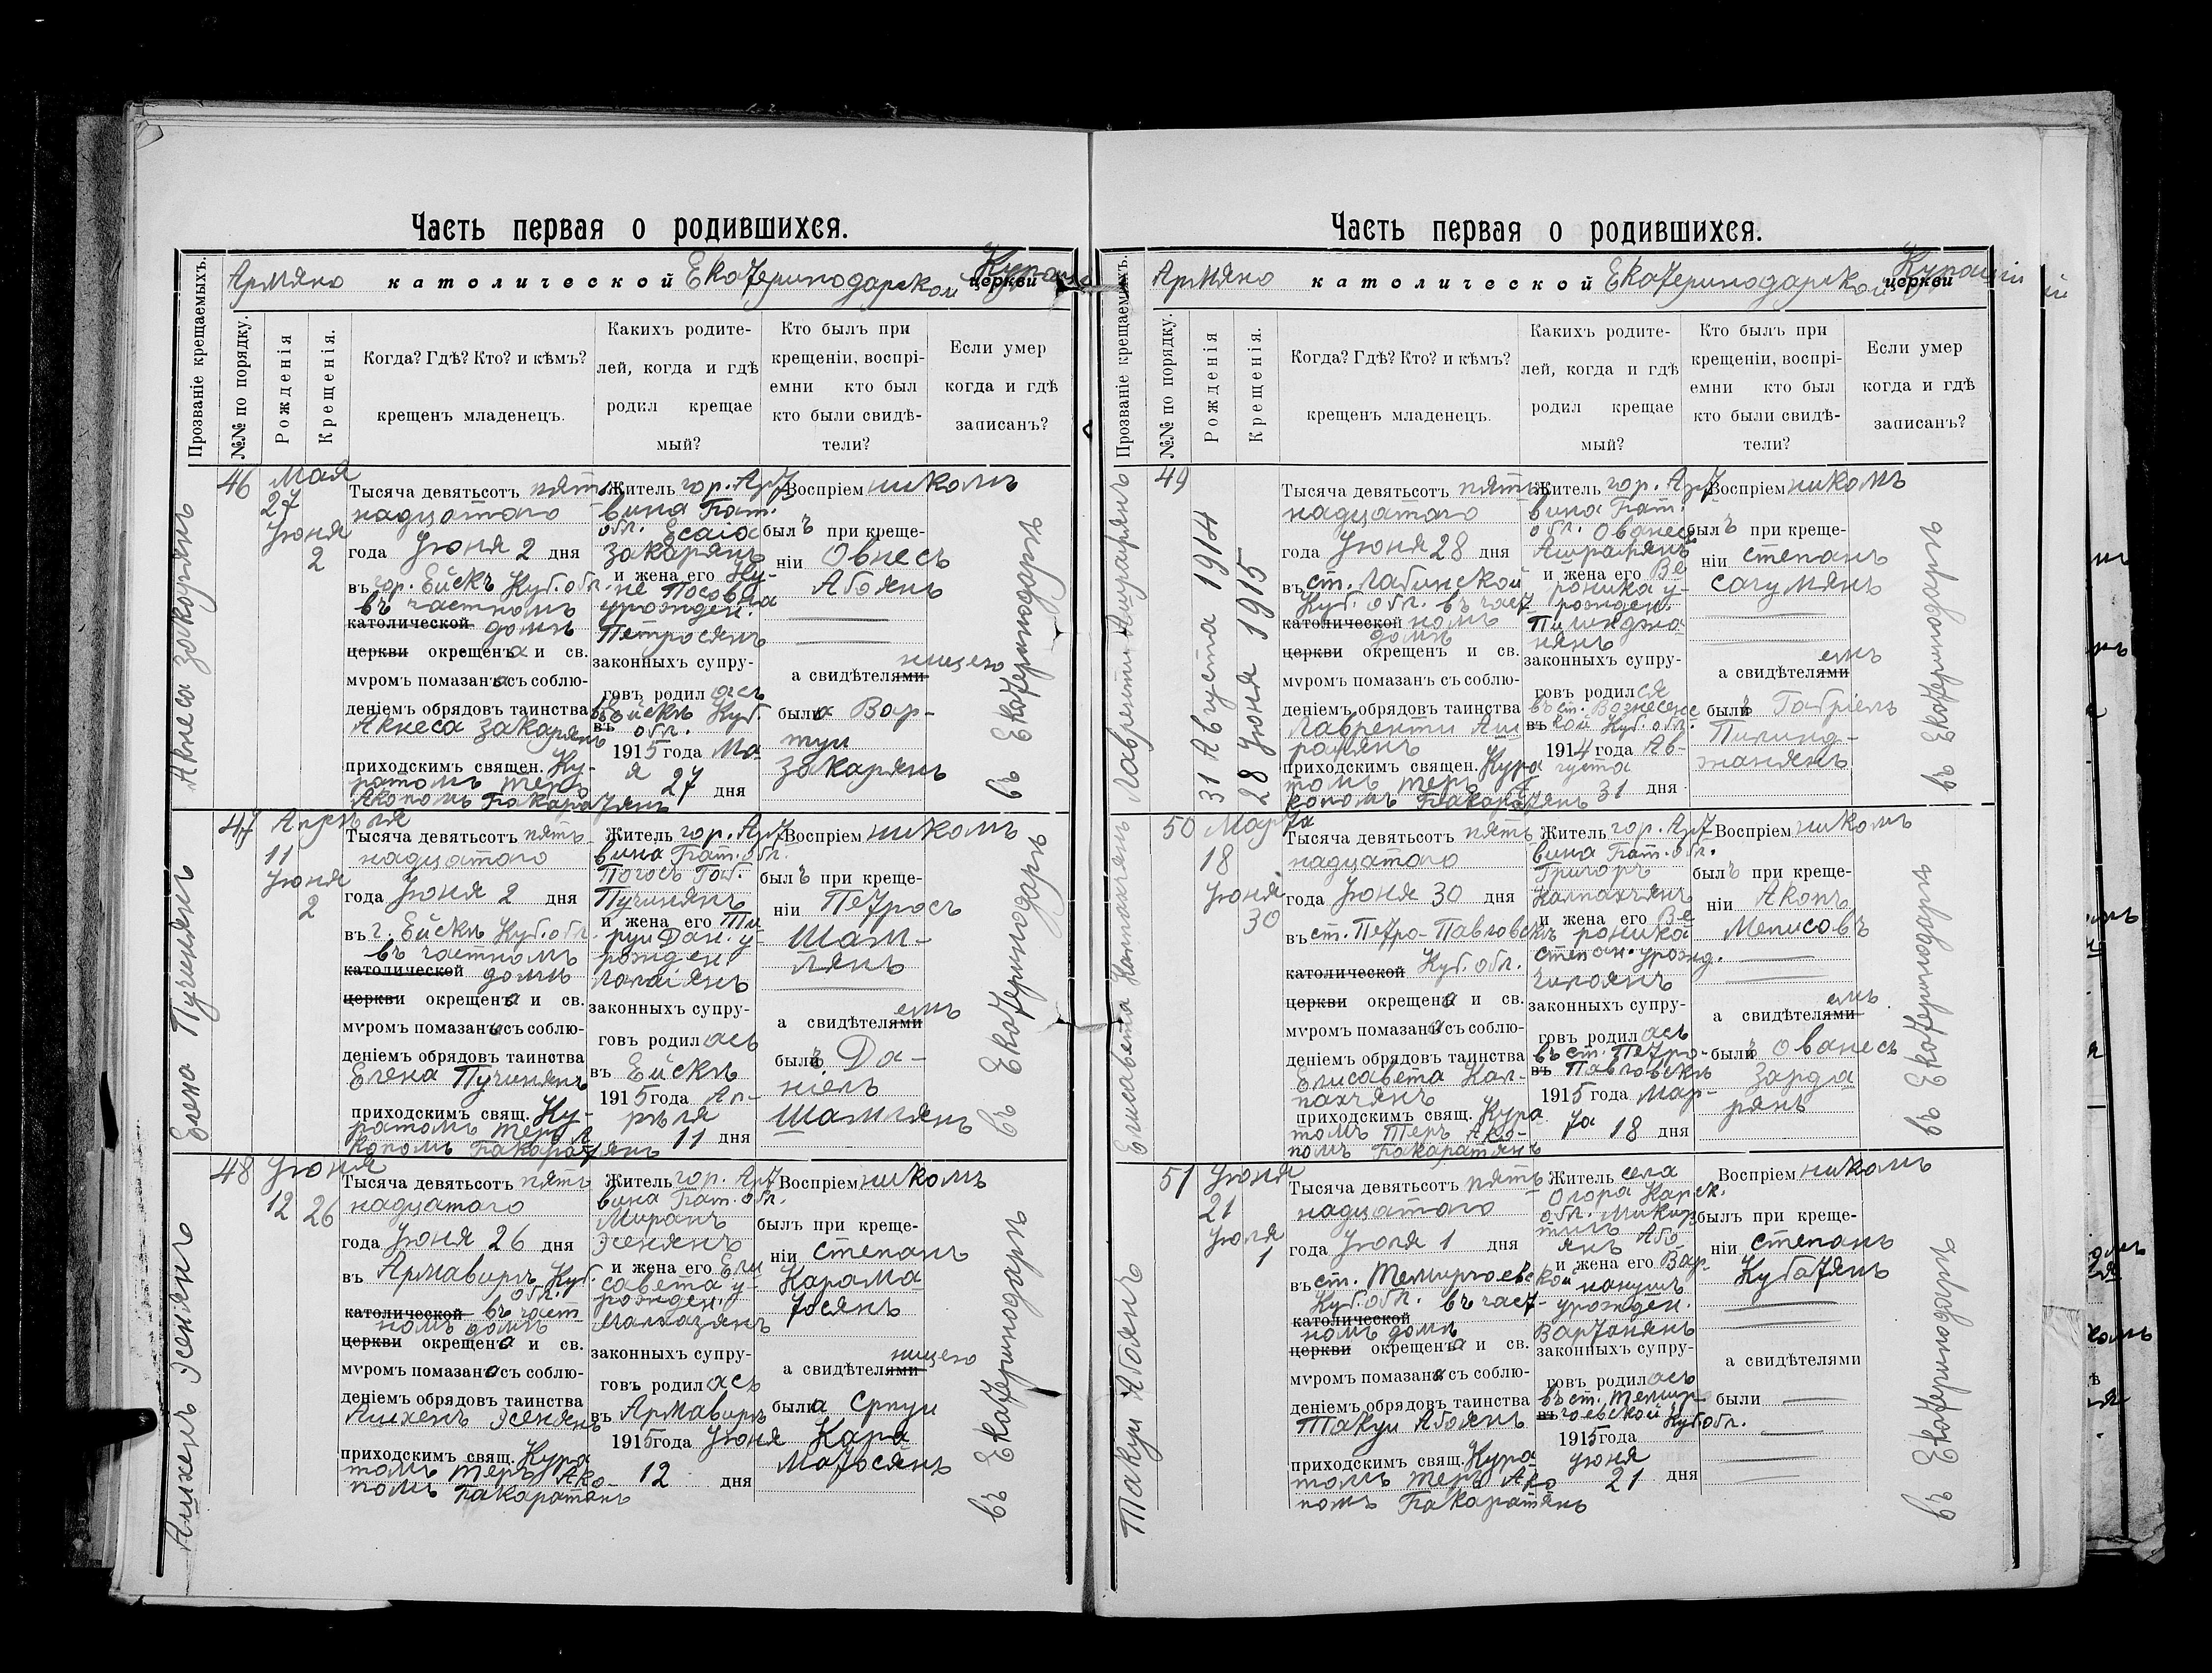 Часть первая о родившихся.
Армяно католической Екатеринодарской церкви
Прозваніе крещаемыхъ.
№№ по порядку.
Рожденія
Крещенія.
Когда? Гдѣ? Кто? и кѣмъ?
крещенъ младенецъ.
Какихъ родите-
лей, когда и гдѣ
родил крещае
мый?
Кто былъ при
крещеніи, воспрі-
емни кто был
кто были свидѣ-
тели?
Если умер
когда и гдѣ
записанъ?
Акнеса Закарянъ
46
Мая
27
Іюня
2
Тысяча девятьсотъ пят
надцатаго
года Іюня 2 дня
въ гор. Ейскѣ Куб. обл.
въ частномъ
католической домѣ
церкви окрещена и св.
мѵромъ помазана съ соблю-
деніемъ обрядовъ таинства
Акнеса Закарянъ
приходскимъ священ. Ку-
ратомъ Теръ
Акопомъ Бакаратянъ
Житель гор. Арт
вина Бат.
обл. Есаіа
Закарянъ
и жена его Ну-
не Посовна
урожден.
Петросянъ
законныхъ супру-
говъ родилась
въ Ейскѣ Куб.
въ обл.
1915 года Ма-
я
27 дня
Воспріемникомъ
былъ при креще-
ніи Овнесъ
Абоянъ
а свидѣтелями ницею
была Вар-
туи
Закарянъ
въ Екатеринодарѣ
Елена Пучинянъ
47
Апрѣля
11
Іюня
2
Тысяча девятьсотъ пять
надцатаго
года Іюня 2 дня
въ г. Ейскѣ Куб. обл.
въ частномъ
католической домѣ
церкви окрещена и св.
мѵромъ помазана съ соблю-
деніемъ обрядовъ таинства
Елена Пучинянъ
приходскимъ свящ. Ку-
ратомъ Теръ А
копомъ Бакаратянъ
Житель гор. Арт
вина Бат. обл.
Погосъ Габ.
Пучинянъ
и жена его Ти
руи Дан. у-
рожден.
законныхъ супру-
говъ родилась
въ Ейскѣ
1915 года Ап-
рѣля
11 дня
Воспріемникомъ
былъ при креще-
ніи Петросъ
Шам-
лянъ
а свидѣтелями емъ
былъ Да-
ніелъ
Шамлянъ
въ Екатеринодарѣ
Ашхенъ Эсенянъ
48
Іюня
12 26
Тысяча девятьсотъ пять
надцатаго
года Іюня 26 дня
въ Армавирѣ Куб.
обл.
католической въ част
номъ домѣ
церкви окрещена и св.
мѵромъ помазана съ соблю-
деніемъ обрядовъ таинства
Ашхенъ Эсенянъ
приходскимъ свящ. Кура
томъ Теръ Ако-
помъ Бакаратянъ
Житель гор. Арт
вина Бат. обл.
Миранъ
Эсенянъ
и жена его Ели
савета у-
рожден.
Малхазянъ
законныхъ супру-
говъ родилась
въ Армавирѣ
1915 года Іюня
12 дня
Воспріемникомъ
былъ при креще-
ніи Степанъ
Карама
тосянъ
а свидѣтелями ницею
была Српуи
Кара
Матосянъ
въ Екатеринодарѣ
Часть первая о родившихся.
Армяно католической Екатеринодарской церкви
Прозваніе крещаемыхъ.
№№ по порядку.
Рожденія
Крещенія.
Когда? Гдѣ? Кто? и кѣмъ?
крещенъ младенецъ.
Какихъ родите-
лей, когда и гдѣ
родил крещае
мый?
Кто былъ при
крещеніи, воспрі-
емни кто был
кто были свидѣ-
тели?
Если умер
когда и гдѣ
записанъ?
Лаврентіи Ашрафянъ
49
31 Августа 1914
28 Іюня 1915
Тысяча девятьсотъ пять
надцатаго
года Іюня 28 дня
въ ст. Лабинской
Куб. обл. въ част
католической номъ
домѣ
церкви окрещенъ и св.
мѵромъ помазан съ соблю-
деніемъ обрядовъ таинства
Лаврентіи Аш
рафянъ
приходскимъ священ. Кура
томъ Теръ А
копомъ Бакаратянъ
Житель гор. Арт
вина Бат.
обл. Ованесъ
Ашрафянъ
и жена его Ве
роника у-
рожден.
Пилинджа
нянъ
законныхъ супру-
говъ родился
въ ст. Вознесенс
въ кой Куб. обл.
1914 года Ав-
густа
31 дня
Воспріемникомъ
былъ при креще-
ніи Степанъ
Сагумянъ
а свидѣтелями емъ
былъ Габріелъ
Пилинд-
жанянъ
въ Екатеринодарѣ
Елисавета Калпахчянъ
50
Марта
18
Іюня
30
Тысяча девятьсотъ пять
надцатаго
года Іюня 30 дня
въ ст. Петро-Павловскѣ
католической Куб. обл.
церкви окрещена и св.
мѵромъ помазана съ соблю-
деніемъ обрядовъ таинства
Елисавета Кал-
пахчянъ
приходскимъ свящ. Кура
томъ Теръ Ако-
помъ Бакаратянъ
Житель гор. Арт
вина Бат. обл.
Григоръ
Калпахчянъ
и жена его Ве
роника
Степан. урожд.
законныхъ супру-
говъ родилась
въ ст. Петро-
въ Павловскѣ
1915 года Мар-
та 18 дня
Воспріемникомъ
былъ при креще-
ніи Акопъ
Меписовъ
а свидѣтелями емъ
былъ Ованесъ
Зарда
рянъ
въ Екатеринодарѣ
Такуи Абоянъ
51
Іюня
21
Іюля
1
Тысяча девятьсотъ пять
надцатаго
года Іюля 1 дня
въ ст. Темиргоевской
Куб. обл. въ част-
католической
номъ домѣ
церкви окрещена и св.
мѵромъ помазана съ соблю-
деніемъ обрядовъ таинства
Такуи Абоянъ
приходскимъ свящ. Кура
томъ Теръ Ако
помъ Бакаратянъ
Житель села
Карск.
обл. Микир
тичъ Або
янъ
и жена его Вар-
нануш
урожден.
Вартанянъ
законныхъ супру-
говъ родилась
въ ст. Темир-
въ гоевской Куб. обл.
1915 года
Іюня
21 дня
Воспріемникомъ
былъ при креще-
ніи Степанъ
Кубатянъ
а свидѣтелями
были
въ Екатеринодарѣ